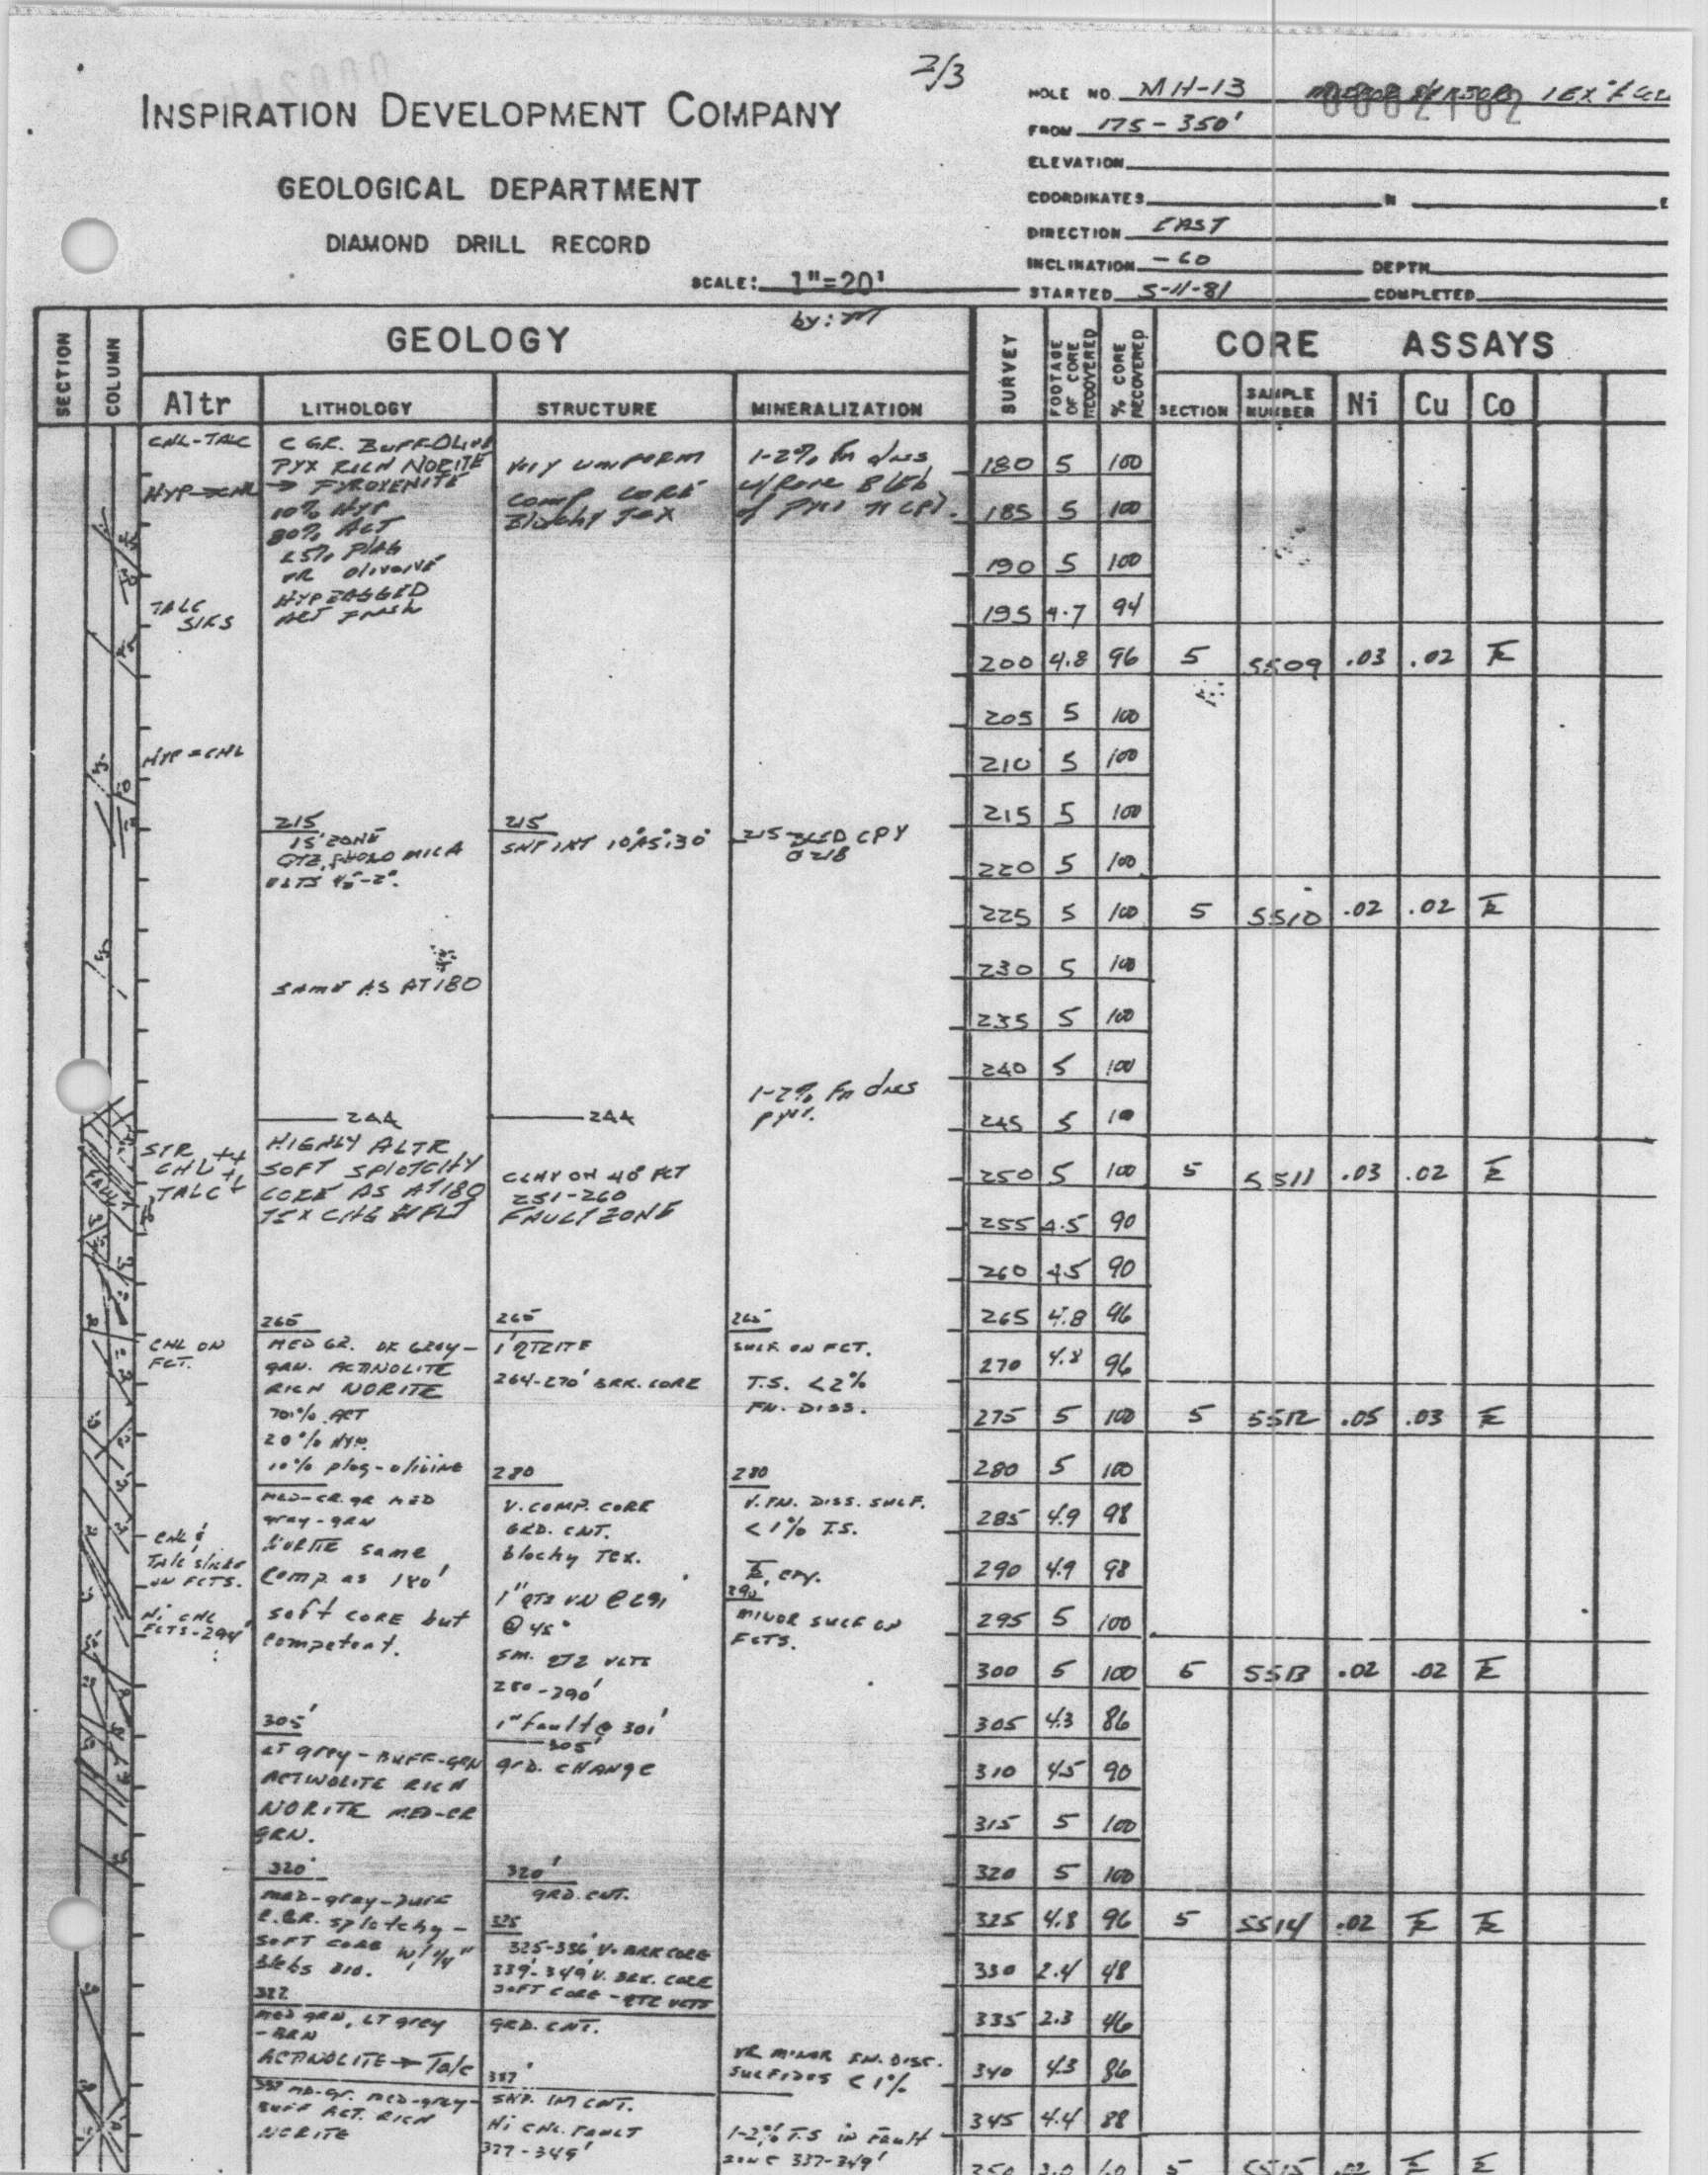 2/3
INSPIRATION DEVELOPMENT COMPANY
GEOLOGICAL DEPARTMENT
DIAMOND DRILL RECORD
SCALE: 1"=20'
by:
HOLE NO. MH-13
0002102
FROM 175-350'
ELEVATION
COORDINATES N E
DIRECTION EAST
INCLINATION -60 DEPTH
STARTED 5-11-81 COMPLETED
SECTION
COLUMN
GEOLOGY
Altr
LITHOLOGY
STRUCTURE
MINERALIZATION
SURVEY
FOOTAGE OF CORE RECOVERED
% CORE RECOVERED
CORE ASSAYS
SECTION
SAMPLE NUMBER
Ni
Cu
Co
CHL-TALC
HYP→CHL
TALC
HYP=CHL
STR ++
CHL ++
TALC +
CHL ON
FCT.
CHL &
Talc slicks
ON FCTS.
Hi CHL
FCTS-294'
C GR. BUFF-OLIVE
PYX RICH NORITE
→ PYROXENITE
10% HYP
80% ACT
25% PLAG
VR OLIVINE
215
15' ZONE
QTZ, PHLOGO MICA
SAME AS AT 180
244
HIGHLY ALTR
SOFT SPLOTCHY
CORE AS AT 180
265
MED GR. DK GREY-
GRN. ACTINOLITE
RICH NORITE
70% ACT
20% HYP.
10% plag-olivine
MED-CR. GR MED
gray-GRN
NORITE same
comp as 180'
soft CORE but
competent.
305'
LT grey-BUFF-GRN
ACTINOLITE RICH
NORITE MED-CR
GRN.
320'
MED-gray-BUFF
C.GR. splotchy-
SOFT CORE w/ 1/4"
Blebs BIO.
MED GRN, LT grey
-BRN
ACTINOLITE → Talc
337 MD-Gr. MED-grey-
BUFF ACT. RICH
NORITE
VRY UNIFORM
COMP CORE
Blochy TEX
215
244
CLAY ON 40° FCT
251-260
FAULT ZONE
265
1' QTZITE
264-270' BRK. CORE
280
V. COMP. CORE
GRD. CNT.
blochy TEX.
1" QTZ VN @ 291'
@ 45°
SM. QTZ VLTS
280-290'
1" Fault @ 301'
305'
GRD. CHANGE
320'
GRD. CNT.
325
325-336' V. BRK CORE
339'-349' V. BRK. CORE
SOFT CORE - QTZ VLTS
GRD. CNT.
337'
SHP. INT CNT.
Hi CHL. FAULT
337-349'
1-2% Fn diss
w/ Rare Bleb
215 BLED CPY
@ 218
1-2% Fn diss
pyrr.
265
SULF. ON FCT.
T.S. <2%
FN. DISS.
280
V. FN. DISS. SULF.
<1% T.S.
Tr. cpy.
290
MINOR SULF ON
FCTS.
VR MINOR FN. DISS.
SULFIDES <1%
1-2% T.S in Fault
zone 337-349'
180 5 100
185 5 100
190 5 100
195 4.7 94
200 4.8 96 5 5509 .03 .02 Tr
205 5 100
210 5 100
215 5 100
220 5 100
225 5 100 5 5510 .02 .02 Tr
230 5 100
235 5 100
240 5 100
245 5 100
250 5 100 5 5511 .03 .02 Tr
255 4.5 90
260 4.5 90
265 4.8 96
270 4.8 96
275 5 100 5 5512 .05 .03 Tr
280 5 100
285 4.9 98
290 4.9 98
295 5 100
300 5 100 5 5513 .02 .02 Tr
305 4.3 86
310 4.5 90
315 5 100
320 5 100
325 4.8 96 5 5514 .02 Tr Tr
330 2.4 48
335 2.3 46
340 4.3 86
345 4.4 88
350 3.0 60 5 5515 .02 Tr Tr